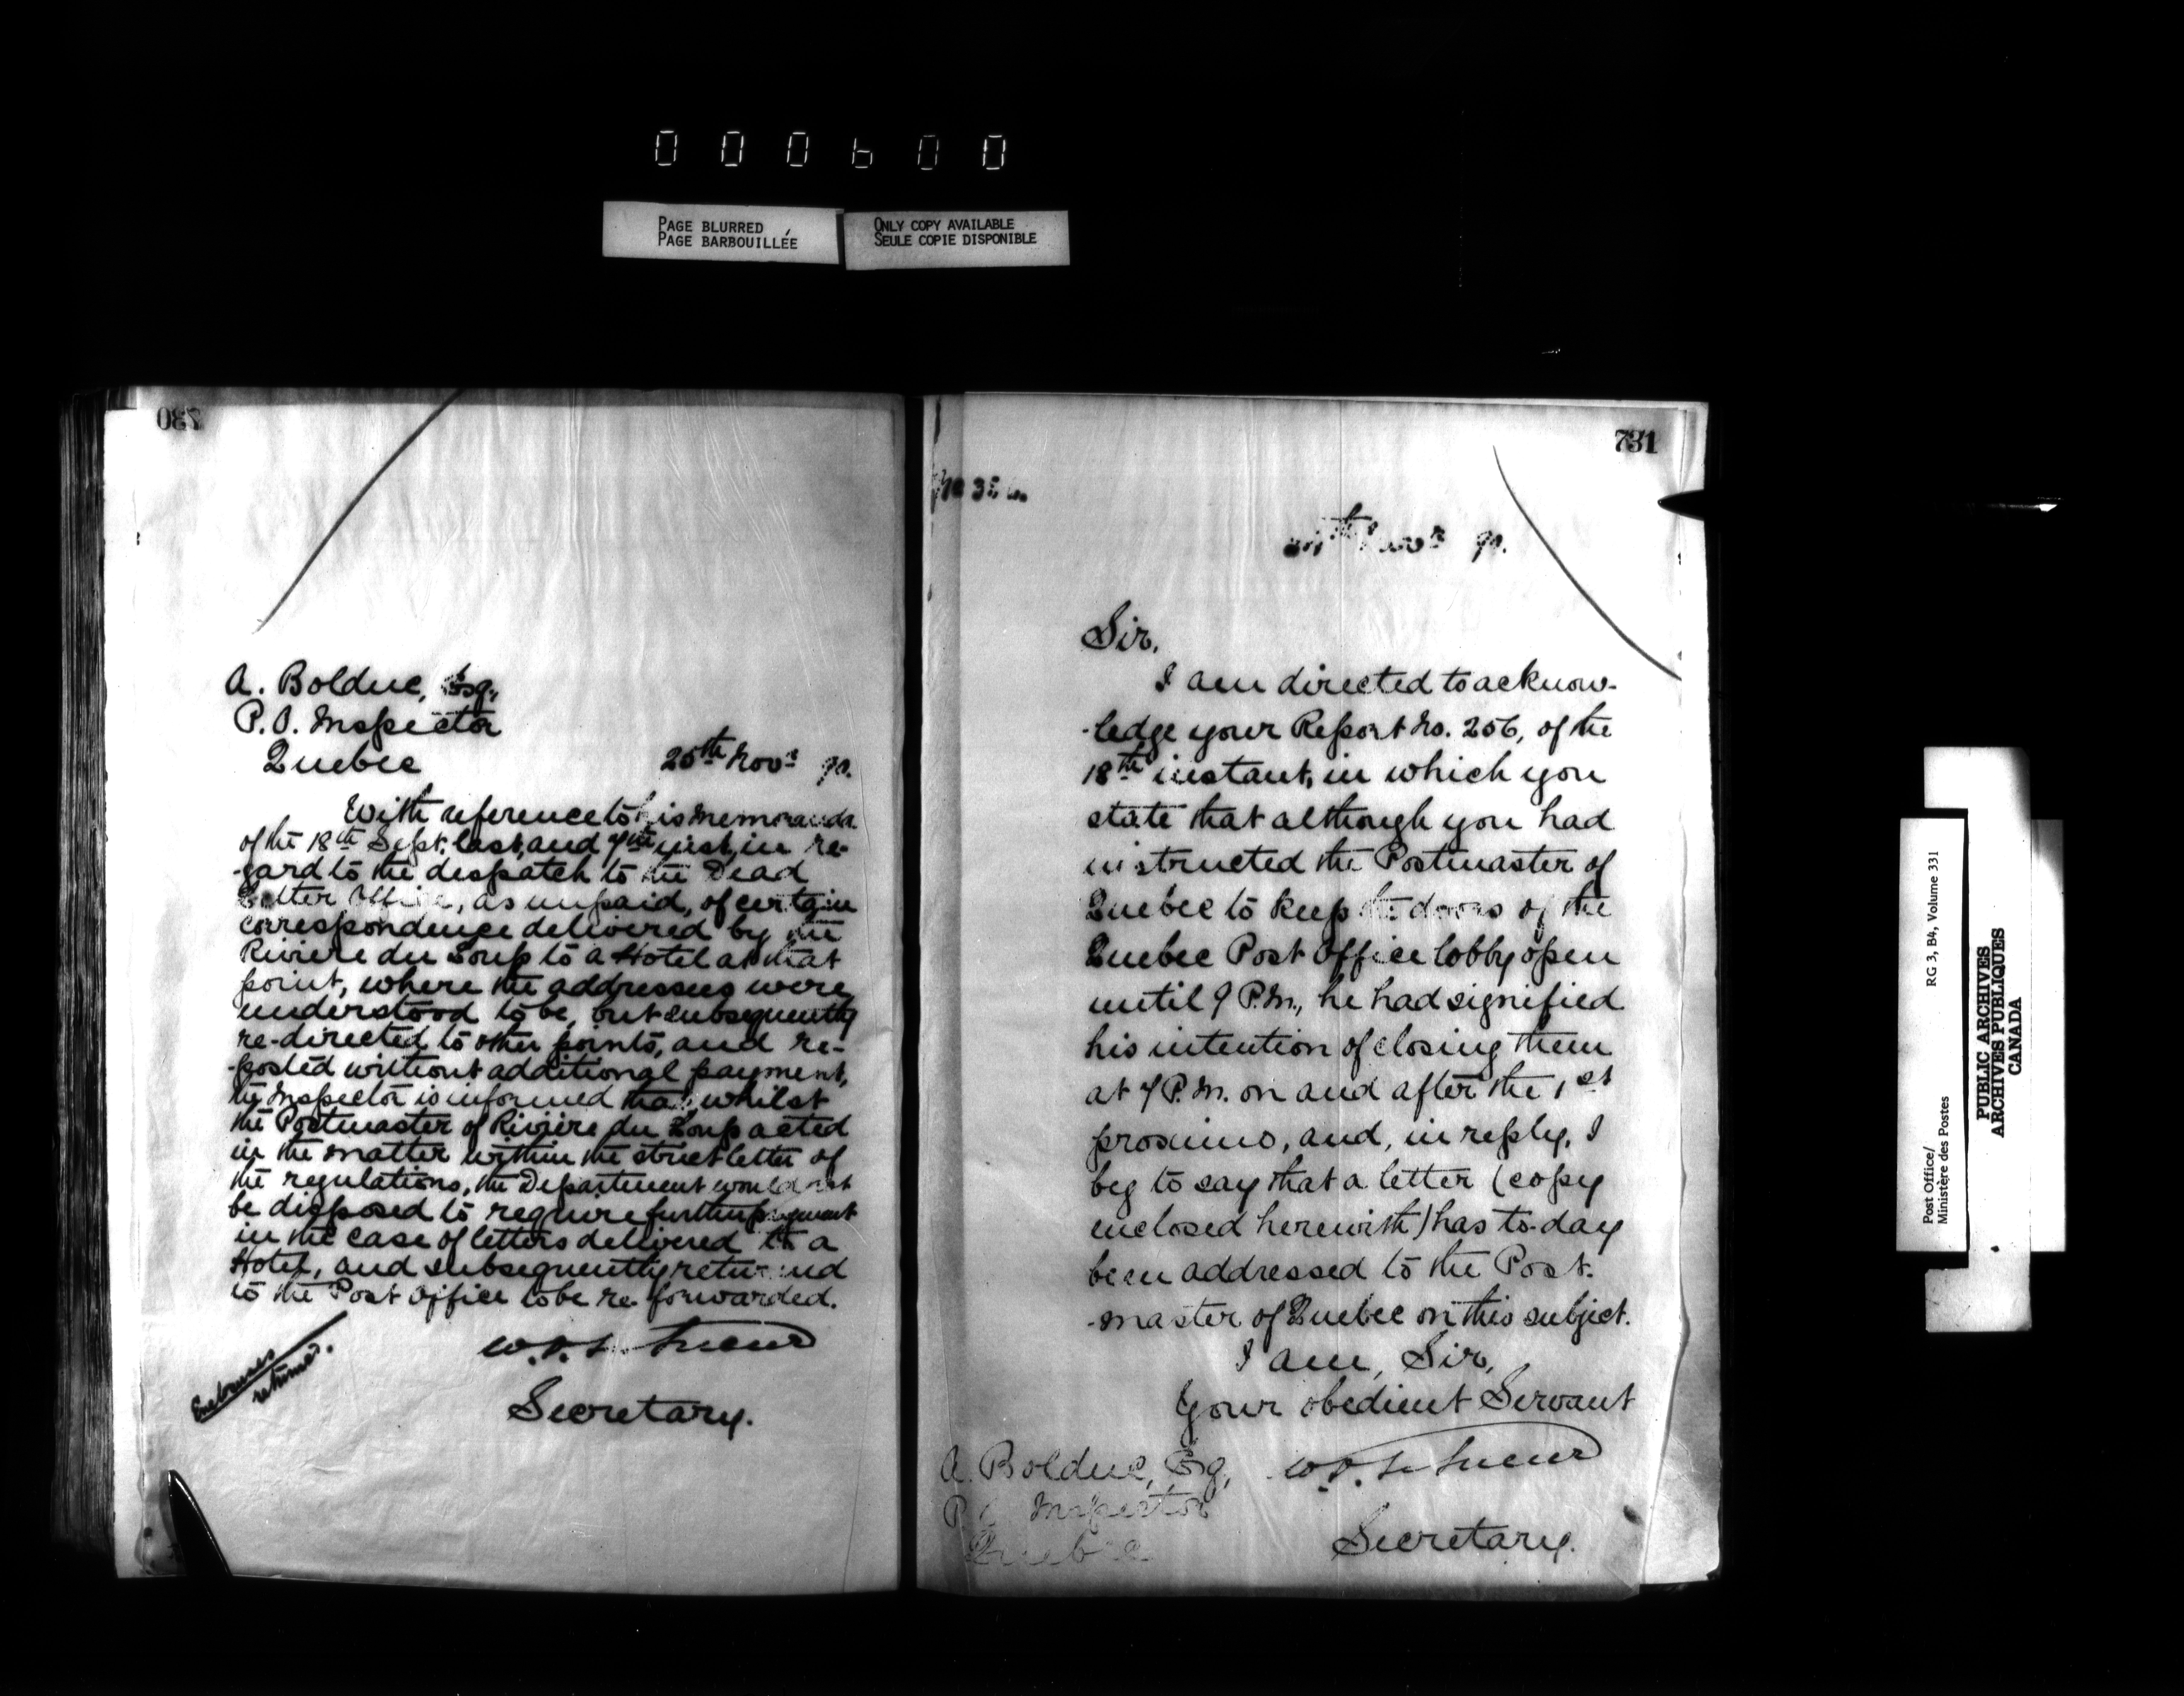 000600
PAGE BLURRED
PAGE BARBOUILLÉE
ONLY COPY AVAILABLE
SEULE COPIE DISPONIBLE
730
A. Bolduc, Esq.,
P.O. Inspector
Quebec
25th Novr. 90.
With reference to his memoranda
of the 18th Sept. last, and 7th inst., in re-
-gard to the despatch to the Dead
Letter Office, as unpaid, of certain
correspondence delivered by the
Rivière du Loup to a Hotel at that
point, where the addressees were
understood to be, but subsequently
re-directed to other points, and re-
-posted without additional payment,
the Inspector is informed that, whilst
the Postmaster of Rivière du Loup acted
in the matter within the strict letter of
the regulations, the Department would not
be disposed to require further payment
in the case of letters delivered to a
Hotel, and subsequently returned
to the Post Office to be re-forwarded.
Enclosures
returned.
W.D. Le Sueur
Secretary.
731
th Novr. 90.
Sir,
I am directed to acknow-
-ledge your Report No. 256, of the
18th instant, in which you
state that although you had
instructed the Postmaster of
Quebec to keep the doors of the
Quebec Post Office lobby open
until 9 P.M., he had signified
his intention of closing them
at 7 P.M. on and after the 1st
proximo, and, in reply, I
beg to say that a letter (copy
enclosed herewith) has to-day
been addressed to the Post-
-master of Quebec on this subject.
I am, Sir,
Your obedient Servant
W.D. Le Sueur
Secretary.
A. Bolduc, Esq.,
P.O. Inspector
Quebec
Post Office/
Ministère des Postes
RG 3, B4, Volume 331
PUBLIC ARCHIVES
ARCHIVES PUBLIQUES
CANADA